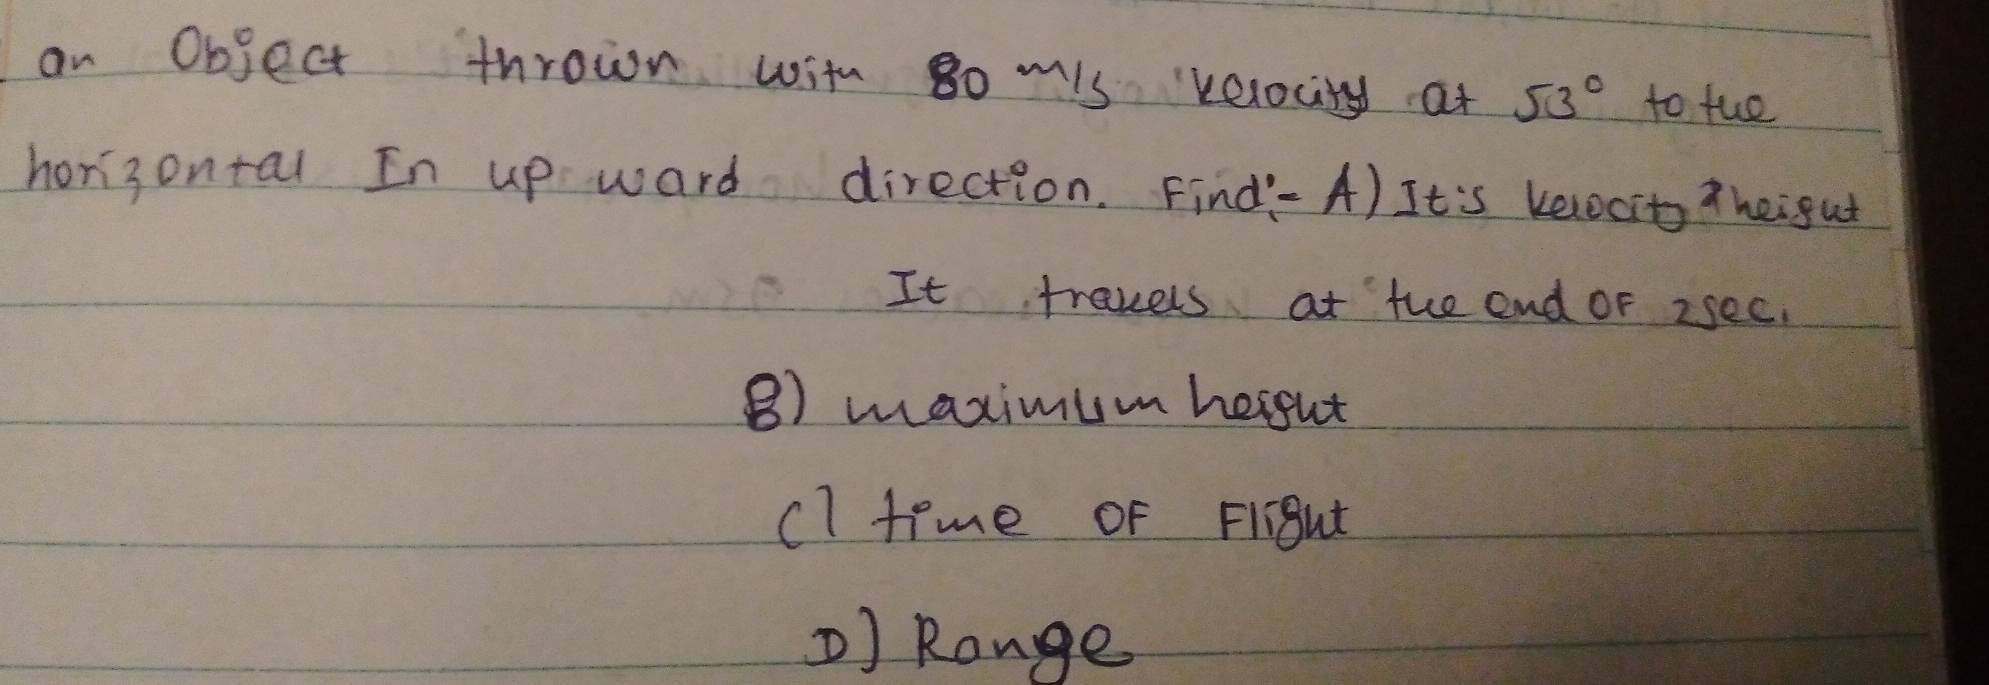 an Object thrown with 80 m/s velocity at 53° to the
horizontal In up ward direction. Find:- A) It's velocity & height
It travels at the end OF 2sec.
B) maximum height
C) time OF Flight
D) Range